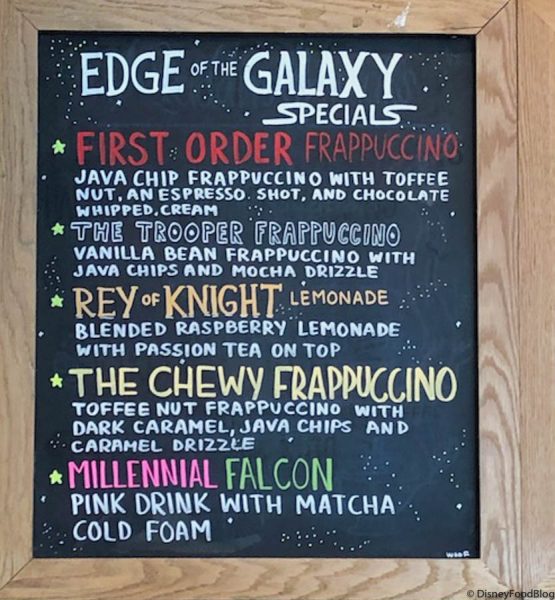 EDGE OF THE GALAXY
SPECIALS
FIRST ORDER FRAPPUCCINO
JAVA CHIP FRAPPUCCINO WITH TOFFEE
NUT, AN ESPRESSO SHOT, AND CHOCOLATE
WHIPPED CREAM
THE TROOPER FRAPPUCCINO
VANILLA BEAN FRAPPUCCINO WITH
JAVA CHIPS AND MOCHA DRIZZLE
REY OF KNIGHT LEMONADE
BLENDED RASPBERRY LEMONADE
WITH PASSION TEA ON TOP
THE CHEWY FRAPPUCCINO
TOFFEE NUT FRAPPUCCINO WITH
DARK CARAMEL, JAVA CHIPS AND
CARAMEL DRIZZLE
MILLENNIAL FALCON
PINK DRINK WITH MATCHA
COLD FOAM
© DisneyFoodBlog